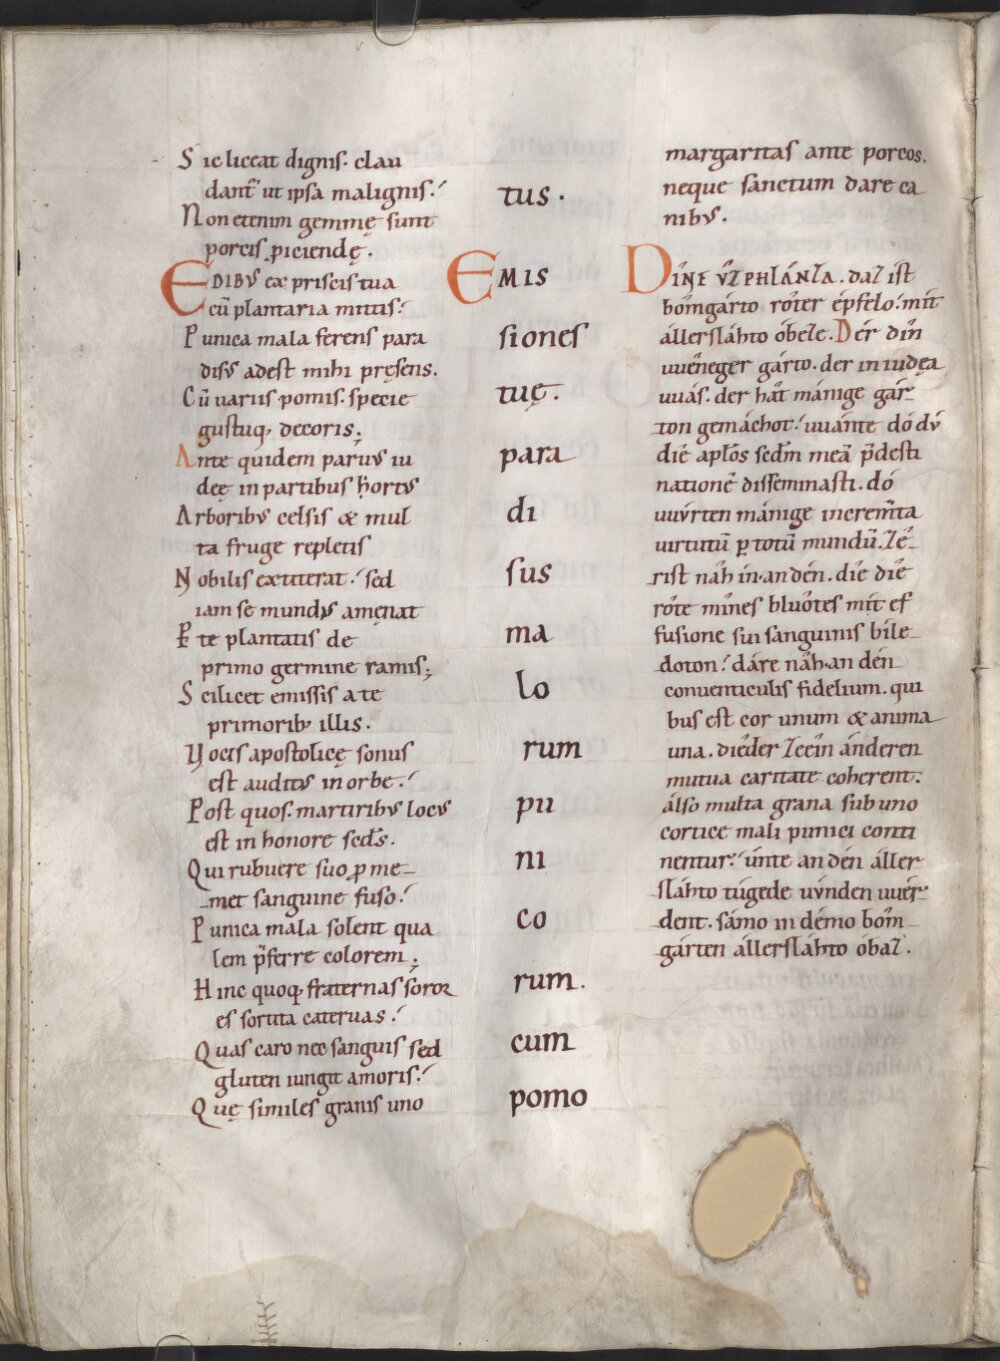 Sic liceat dignis. clau
dant᷑ ut ipsa malignis.
Non etenim gemmę sunt
porcis ꝓiciendę.
EDIBVS ex priscis tua
cū plantaria mittis.
Punica mala ferens para
disus adest mihi pręsens.
Cū uariis pomis. specie
gustuq; decoris;
Ante quidem paruus iu
deę in partibus hortus
Arboribus celsis & mul
ta fruge repletis
Nobilis extiterat. sed
iam se mundus amęnat
Ex te plantatis de
primo germine ramis;
Scilicet emissis a te
primorib; illis.
Vocis apostolicę sonus
est auditus in orbe.
Post quos. martiribus locus
est in honore scd̄s.
Qui rubuere suo ꝓ me
met sanguine fuso.
Punica mala solent qua
lem p̄ferre colorem;
Hinc quoq; fraternas soror
es sortita cateruas.
Quas caro nec sanguis sed
gluten iungit amoris.
Quę similes granis uno
tus.
EMIS
siones
tuę.
para
di
sus
ma
lo
rum
pu
ni
co
rum.
cum
pomo
margaritas ante porcos.
neque sanctum dare ca
nibus.
DÎNE VZPHLÁNZA. daz ist
bôimgarto rôter épfelo. mit
állerslahto óbeze. Dér dîn
uuêneger gárto. der in iudęa
uuás. der hât mánige gár
ton gemáchot. uuánte dó dv́
dîe apl̄os scd̄m meā p̄desti
natione disseminasti. dó
uuv́rten mánige increm̄ta
virtutū ꝑ totū mundū. Zê
rist náh in. an dén. díe díe
rôte mînes blûotes mít ef
fusione sui sanguinis bíle
doton. dáre náh. an dén
conventiculis fidelium. qui
bus est cor unum & anima
una. dîeder zeêin ánderen
mutua caritate coherent.
álso multa grana sub uno
cortice mali punici conti
nentur. únte an dén áller
sláhto túgede uv́nden uuér
dent. sámo in démo bôm
gárten állerslahto óbaz.